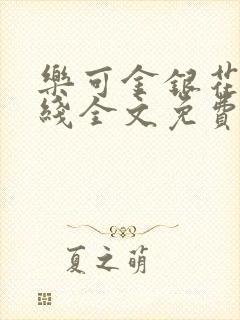 樂可金銀花
綫全文免費
夏之萌